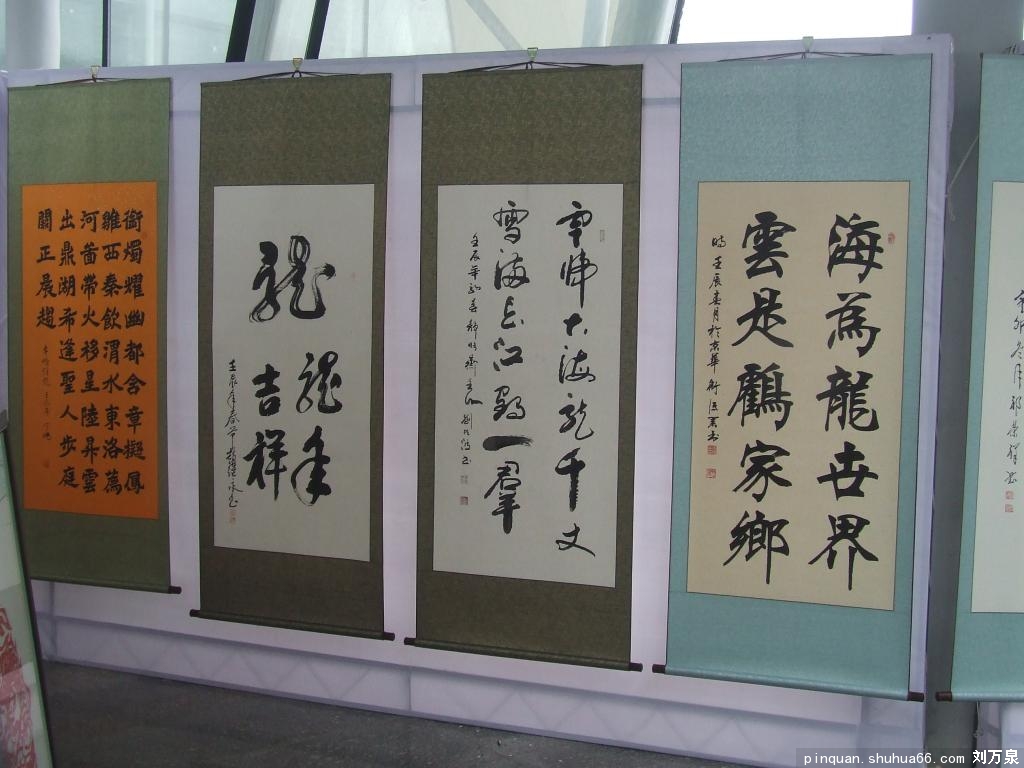 銜燭耀幽都含章擬鳳
雛西秦飲渭水東洛薦
河啚帶火移星陸昇雲
出鼎湖希逢聖人步庭
闕正晨趨
龍
龍年
吉祥
壬辰年春节
雲歸大海龍千丈
雪滿長空鶴一羣
壬辰年
海為龍世界
雲是鶴家鄉
時壬辰春月於京華
辛卯冬月
pinquan.shuhua66.com 刘万泉